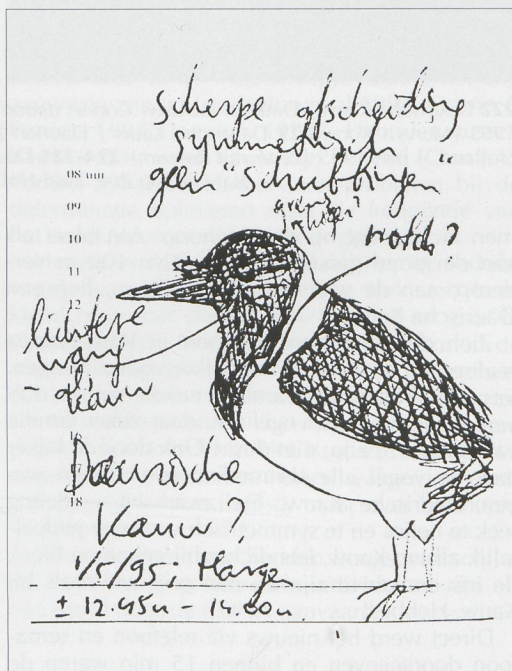 scherpe afscheiding
symmetrisch
geen "schubbing"
grens
nord?
08 uur
09
10
11
12
lichtere
wang
- kauw
Daurische
18
Kauw
1/5/95; Huizen
± 12.45u - 14.00u.